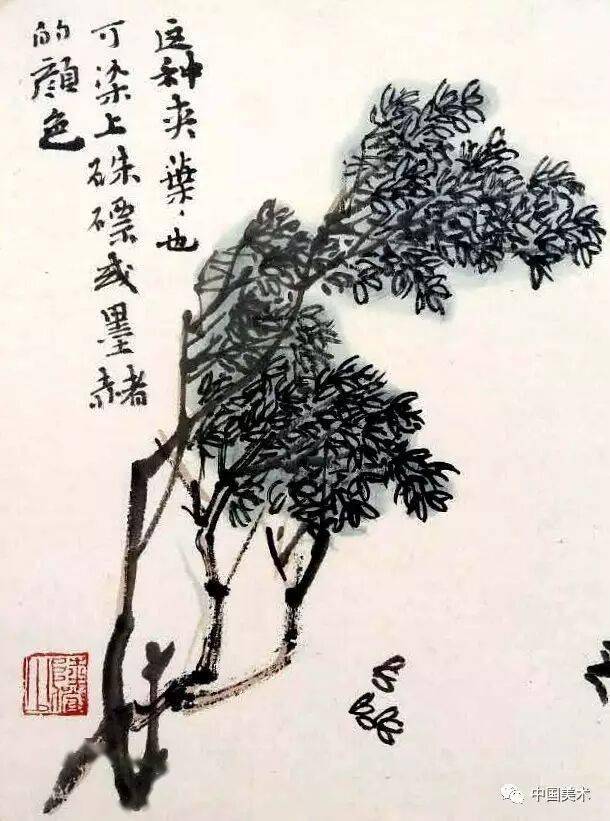 这种夹葉、也
可染上硃磦或墨赭
的顔色
中国美术